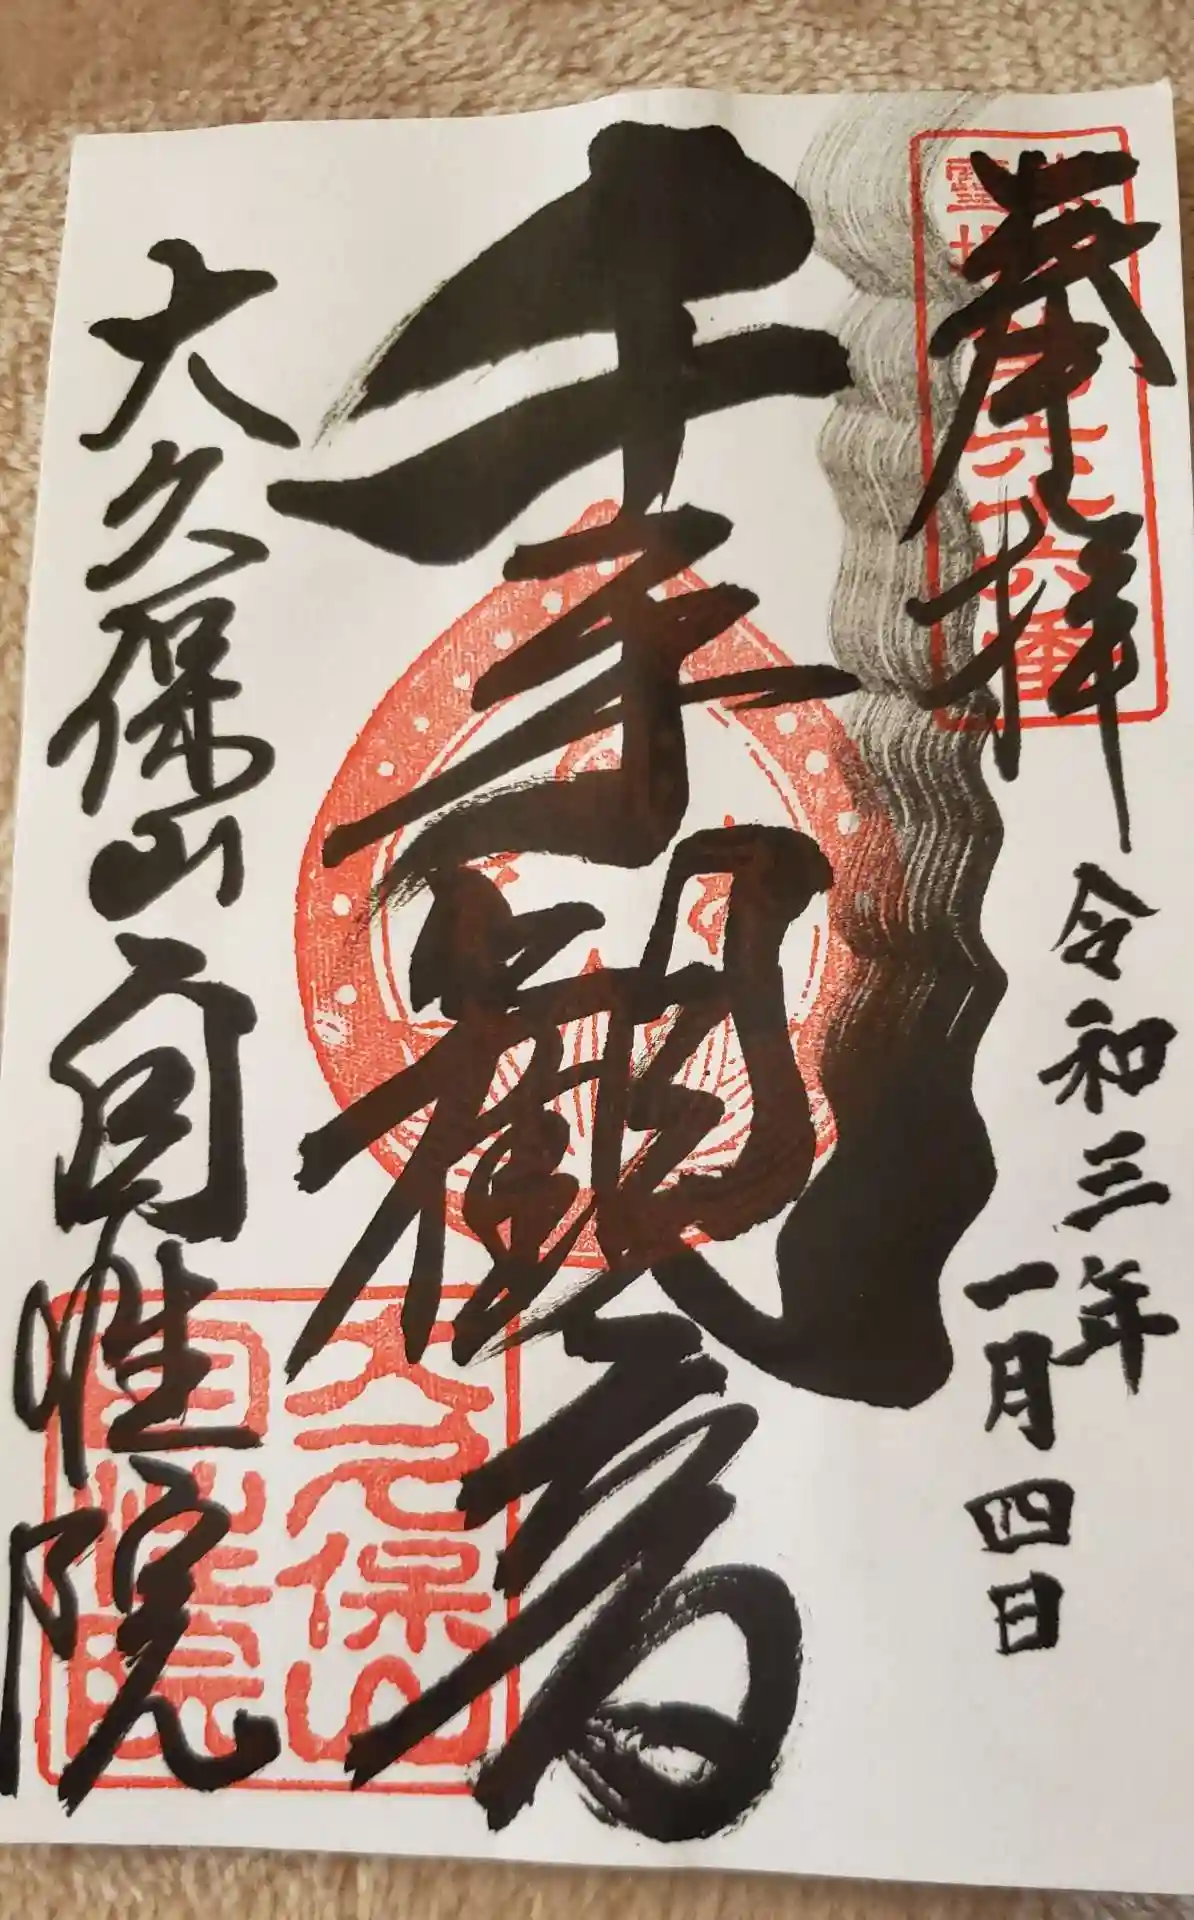 奉拝
令和三年
一月四日
千手観音
大久保山自性院
大久保山
自性院